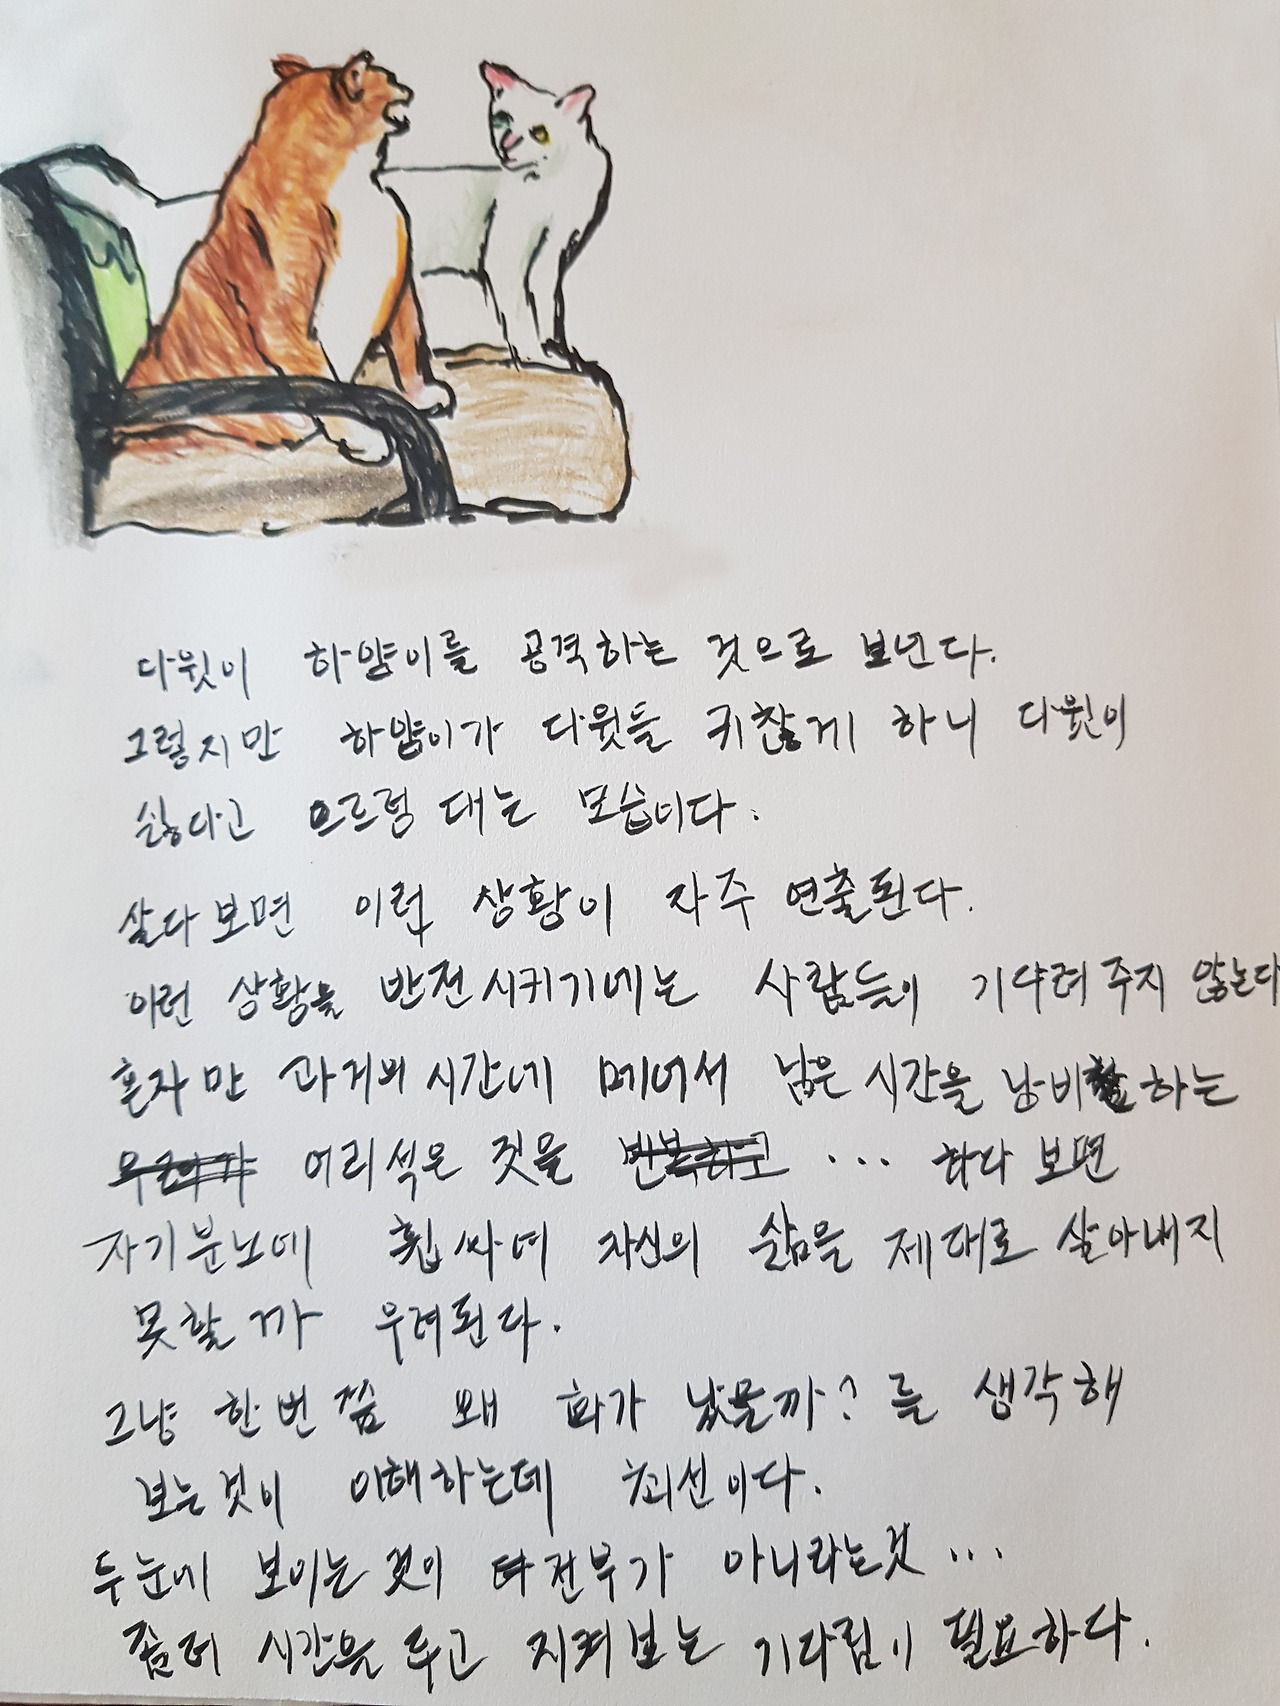 다윗이 하얌이를 공격하는 것으로 보낸다.
그렇지만 하얌이가 다윗를 귀찮게 하니 다윗이
싫다고 으르렁 대는 모습이다.
살다보면 이런 상황이 자주 연출된다.
이런 상황을 반전시키기에는 사람들이 기다려 주지 않는다
혼자만 과거의 시간네 메여서 남은 시간을 낭비하는
어리석은 짓을 ... 하다보면
자기분노에 휩싸여 자신의 삶을 제대로 살아내지
못할까 우려된다.
그냥 한번쯤 왜 화가 났을까? 를 생각해
보는것이 이해하는데 최선이다.
두눈에 보이는 것이 다 전부가 아니라는것 ...
좀더 시간을 두고 지켜보는 기다림이 필요하다.